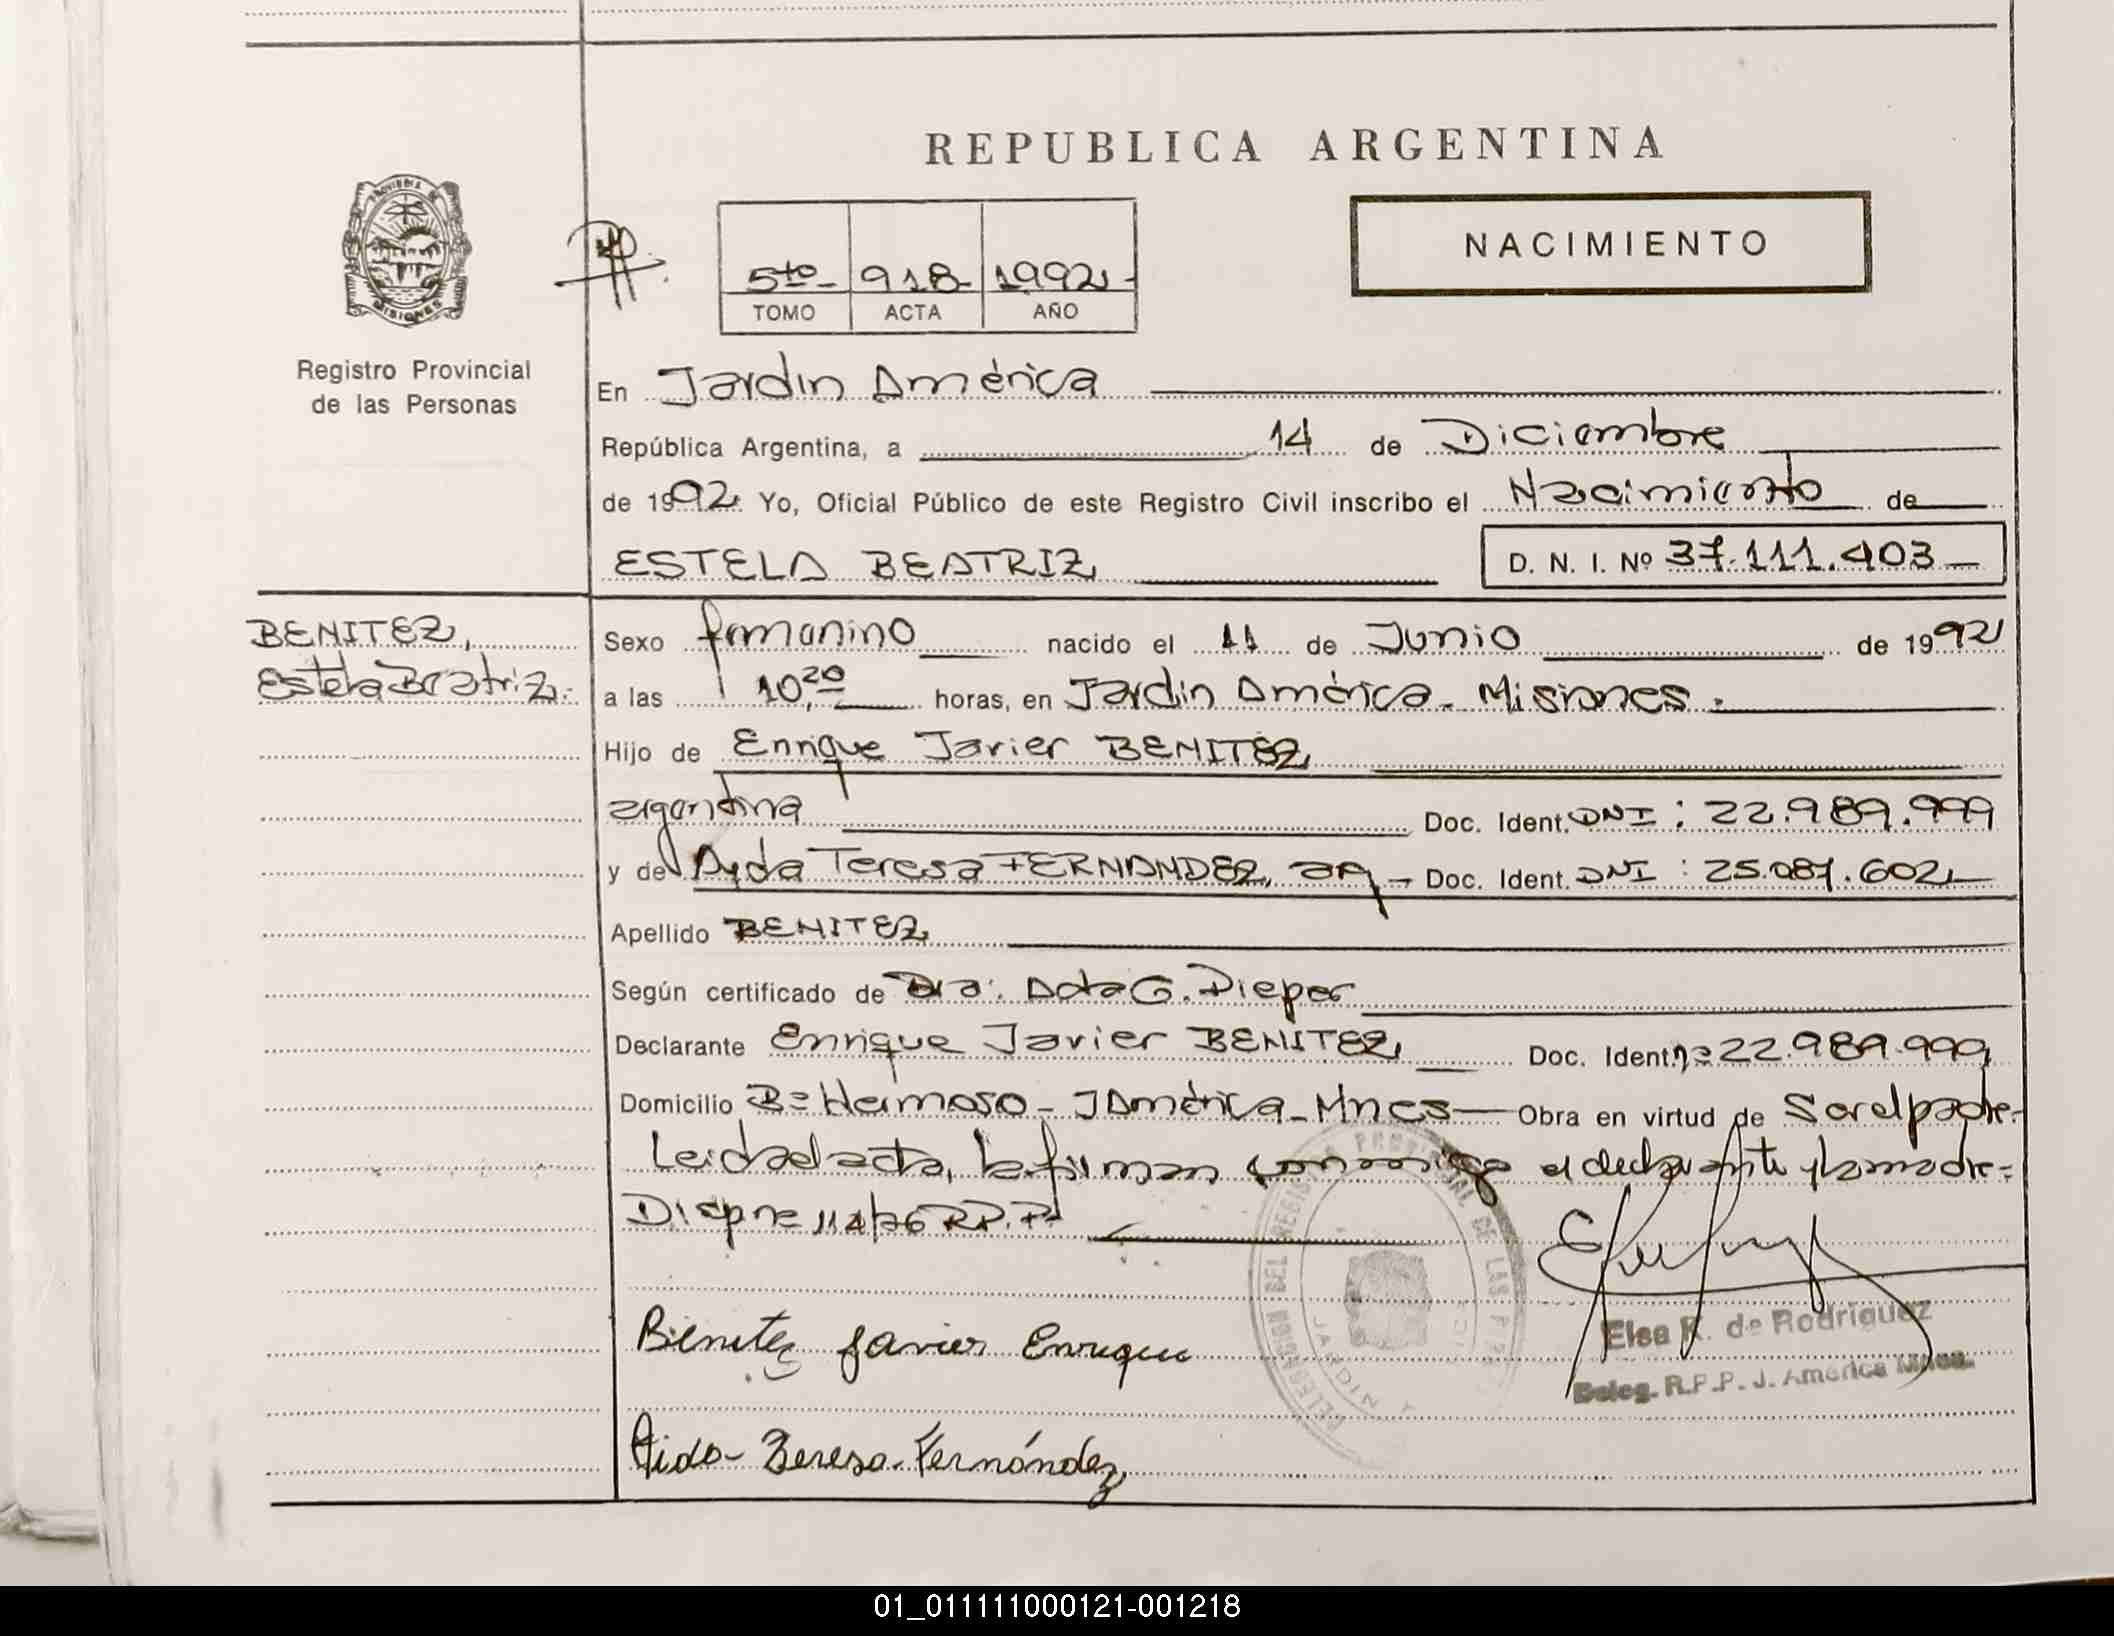 REPUBLICA ARGENTINA
NACIMIENTO
5to 918 1992
TOMO ACTA AÑO
Registro Provincial
de las Personas
En Jardin América
República Argentina, a 14 de Diciembre
de 1992 Yo, Oficial Público de este Registro Civil inscribo el Nacimiento de
ESTELA BEATRIZ D. N. I. Nº 37.111.403
BENITEZ,
Estela Beatriz.
Sexo femenino nacido el 11 de Junio de 1992
a las 10,20 horas, en Jardin América - Misiones.
Hijo de Enrique Javier BENITEZ
argentina Doc. Ident. DNI: 22.989.999
y de Ayda Teresa FERNANDEZ, arg - Doc. Ident. DNI: 25.087.602
Apellido BENITEZ
Según certificado de Dra. G. Dieper
Declarante Enrique Javier BENITEZ Doc. Ident. 22.989.999
Domicilio Bº Hermoso - J América - Mnes Obra en virtud de Ser el padre.
Leida el acta, la firman conmigo el declarante y la madre=
114/76 R.P.P.
DELEGACION DEL REGISTRO PROVINCIAL DE LAS
JARDIN
Elsa R. de Rodriguez
Deleg. R.P.P. J. América Mnes.
Benitez Javier Enrique
Aida Teresa Fernández
01_011111000121-001218